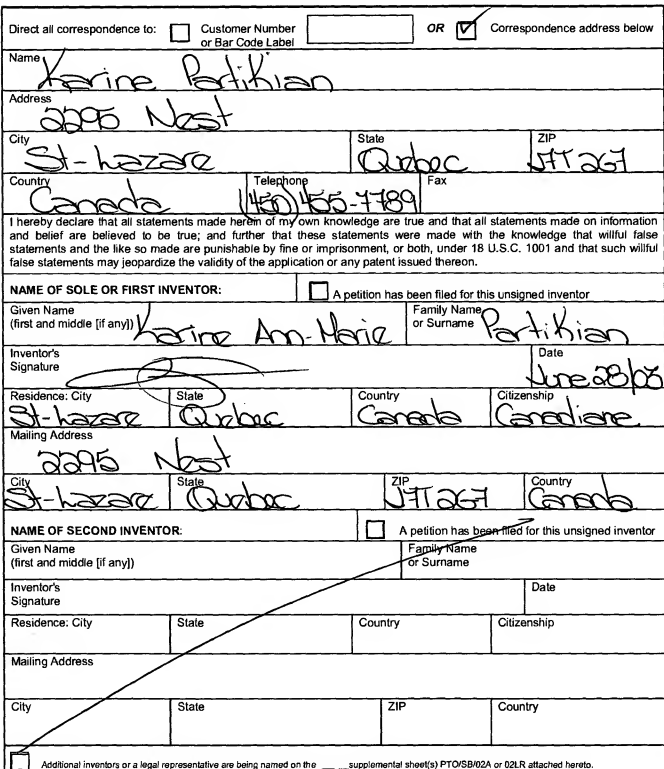 Direct all correspondence to: Customer Number or Bar Code Label OR Correspondence address below
Name
Karine Partikian
Address
2295 Nest
City State ZIP
St-Lazare Quebec J7T 2G7
Country Telephone Fax
Canada (450) 455-7789
I hereby declare that all statements made herein of my own knowledge are true and that all statements made on information
and belief are believed to be true; and further that these statements were made with the knowledge that willful false
statements and the like so made are punishable by fine or imprisonment, or both, under 18 U.S.C. 1001 and that such willful
false statements may jeopardize the validity of the application or any patent issued thereon.
NAME OF SOLE OR FIRST INVENTOR: A petition has been filed for this unsigned inventor
Given Name Family Name
(first and middle [if any]) Karine Ann-Marie or Surname Partikian
Inventor's Date
Signature June 28/05
Residence: City State Country Citizenship
St-Lazare Quebec Canada Canadiane
Mailing Address
2295 Nest
City State ZIP Country
St-Lazare Quebec J7T 2G7 Canada
NAME OF SECOND INVENTOR: A petition has been filed for this unsigned inventor
Given Name Family Name
(first and middle [if any]) or Surname
Inventor's Date
Signature
Residence: City State Country Citizenship
Mailing Address
City State ZIP Country
Additional inventors or a legal representative are being named on the ____supplemental sheet(s) PTO/SB/02A or 02LR attached hereto.